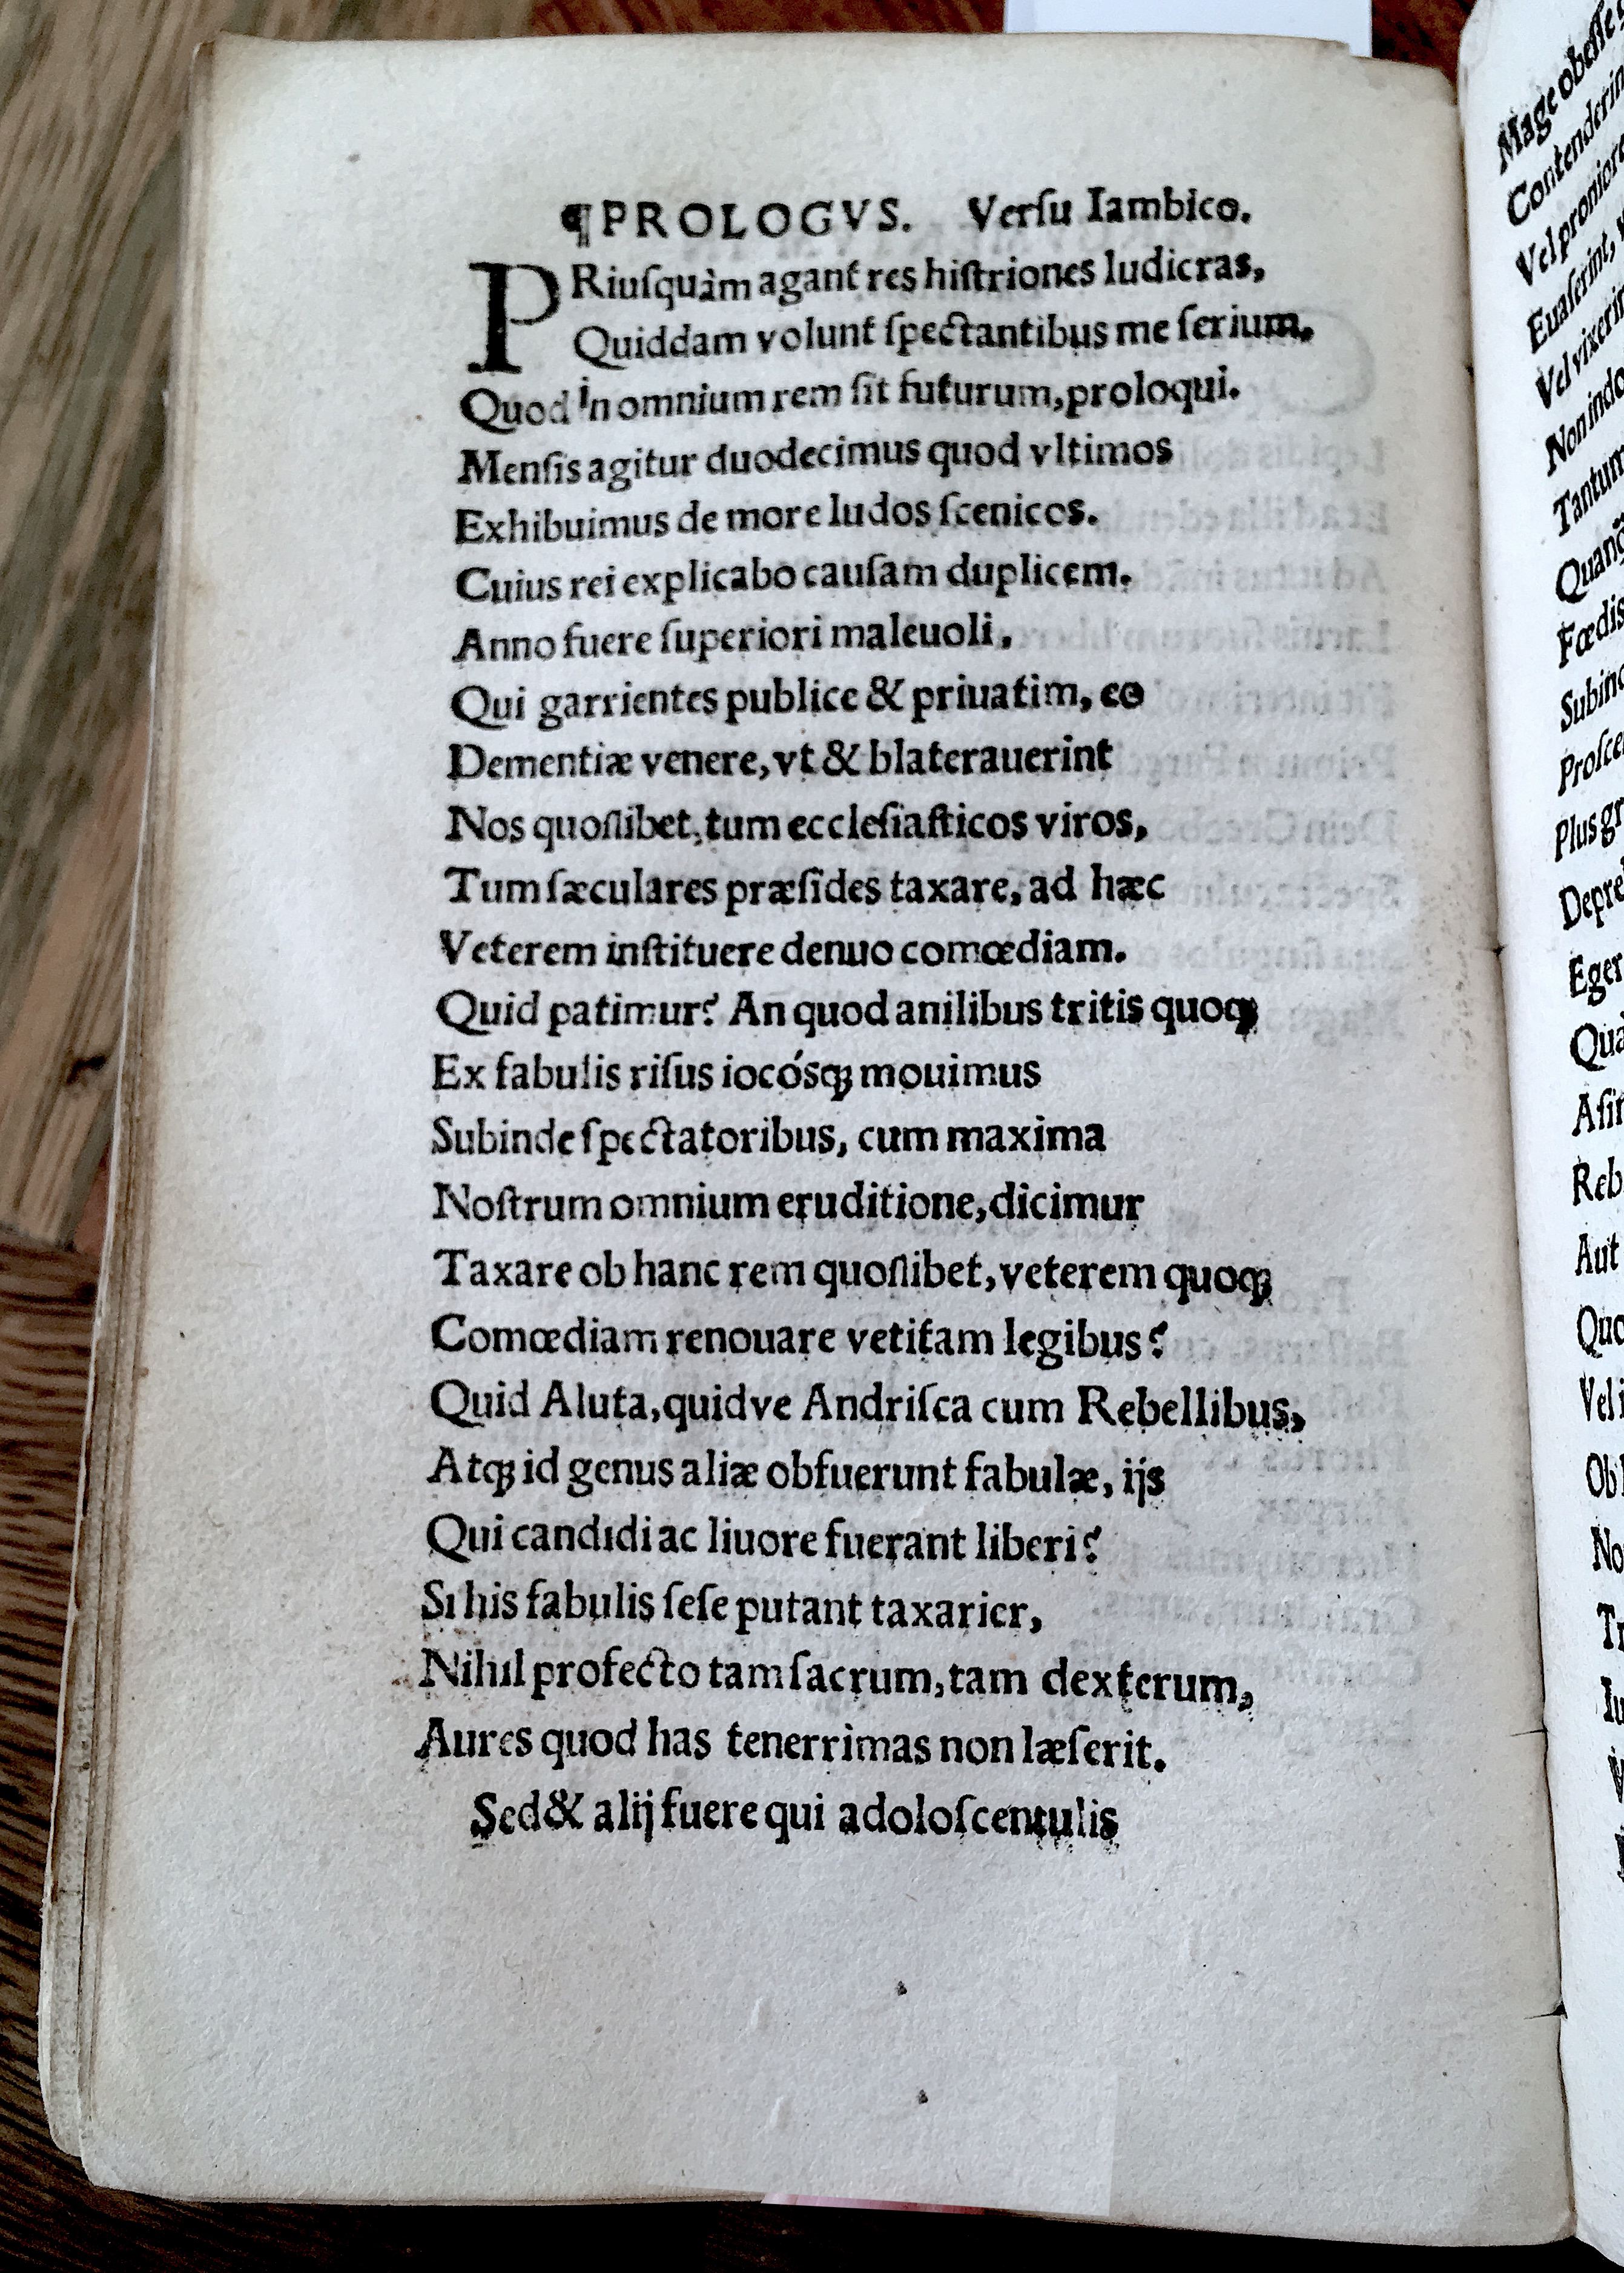 ¶PROLOGVS. Verſu Iambico.
PRiuſquàm agant res hiſtriones ludicras,
Quiddam volunt ſpectantibus me ſerium,
Quod in omnium rem ſit futurum, proloqui.
Menſis agitur duodecimus quod vltimos
Exhibuimus de more ludos ſcenicos.
Cuius rei explicabo cauſam duplicem.
Anno fuere ſuperiori maleuoli,
Qui garrientes publice & priuatim, eo
Dementiæ venere, vt & blaterauerint
Nos quoſlibet, tum eccleſiaſticos viros,
Tum ſæculares præſides taxare, ad hæc
Veterem inſtituere denuo comœdiam.
Quid patimur? An quod anilibus tritis quoqꝫ
Ex fabulis riſus iocósqꝫ mouimus
Subinde ſpectatoribus, cum maxima
Noſtrum omnium eruditione, dicimur
Taxare ob hanc rem quoſlibet, veterem quoqꝫ
Comœdiam renouare vetitam legibus?
Quid Aluta, quidve Andriſca cum Rebellibus,
Atqꝫ id genus aliæ obfuerunt fabulæ, ijs
Qui candidi ac liuore fuerant liberi?
Si his fabulis ſeſe putant taxarier,
Nihil profecto tam ſacrum, tam dexterum,
Aures quod has tenerrimas non læſerit.
Sed & alij fuere qui adoloſcentulis
Mage obeſſe
Vel proniore
Euaſerint,
Non indo
Tantum
Fœdis
Plus gr
Aut